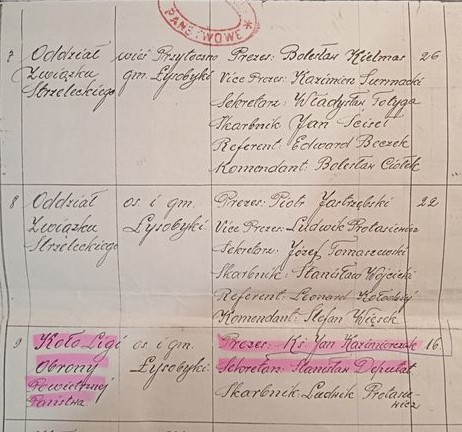 PAŃSTWOWE *
7 Oddział wieś Przytoczno Prezes: Bolesław Kielmas 26
Związku gm. Łysobyki Vice Prezes: Kazimierz
Strzeleckiego Sekretarz: Władysław Fotyga
Skarbnik Jan
Referent: Edward Beczek
Komendant: Bolesław Ciołek
8 Oddział os i gm. Prezes: Piotr Jastrzębski 22
Związku Łysobyki Vice Prezes: Ludwik Protasiewicz
Strzeleckiego Sekretarz: Józef Tomaszewski
Skarbnik: Stanisław Wojcicki
Referent: Leonard Kołodziej
Komendant: Stefan Więsek
9 Koło Ligi os i gm. Prezes - Ks Jan Kazimierczak 16
Obrony Łysobyki Sekretarz: Stanisław Deputat
Powietrznej Skarbnik: Ludwik Protasie-
Państwa wicz